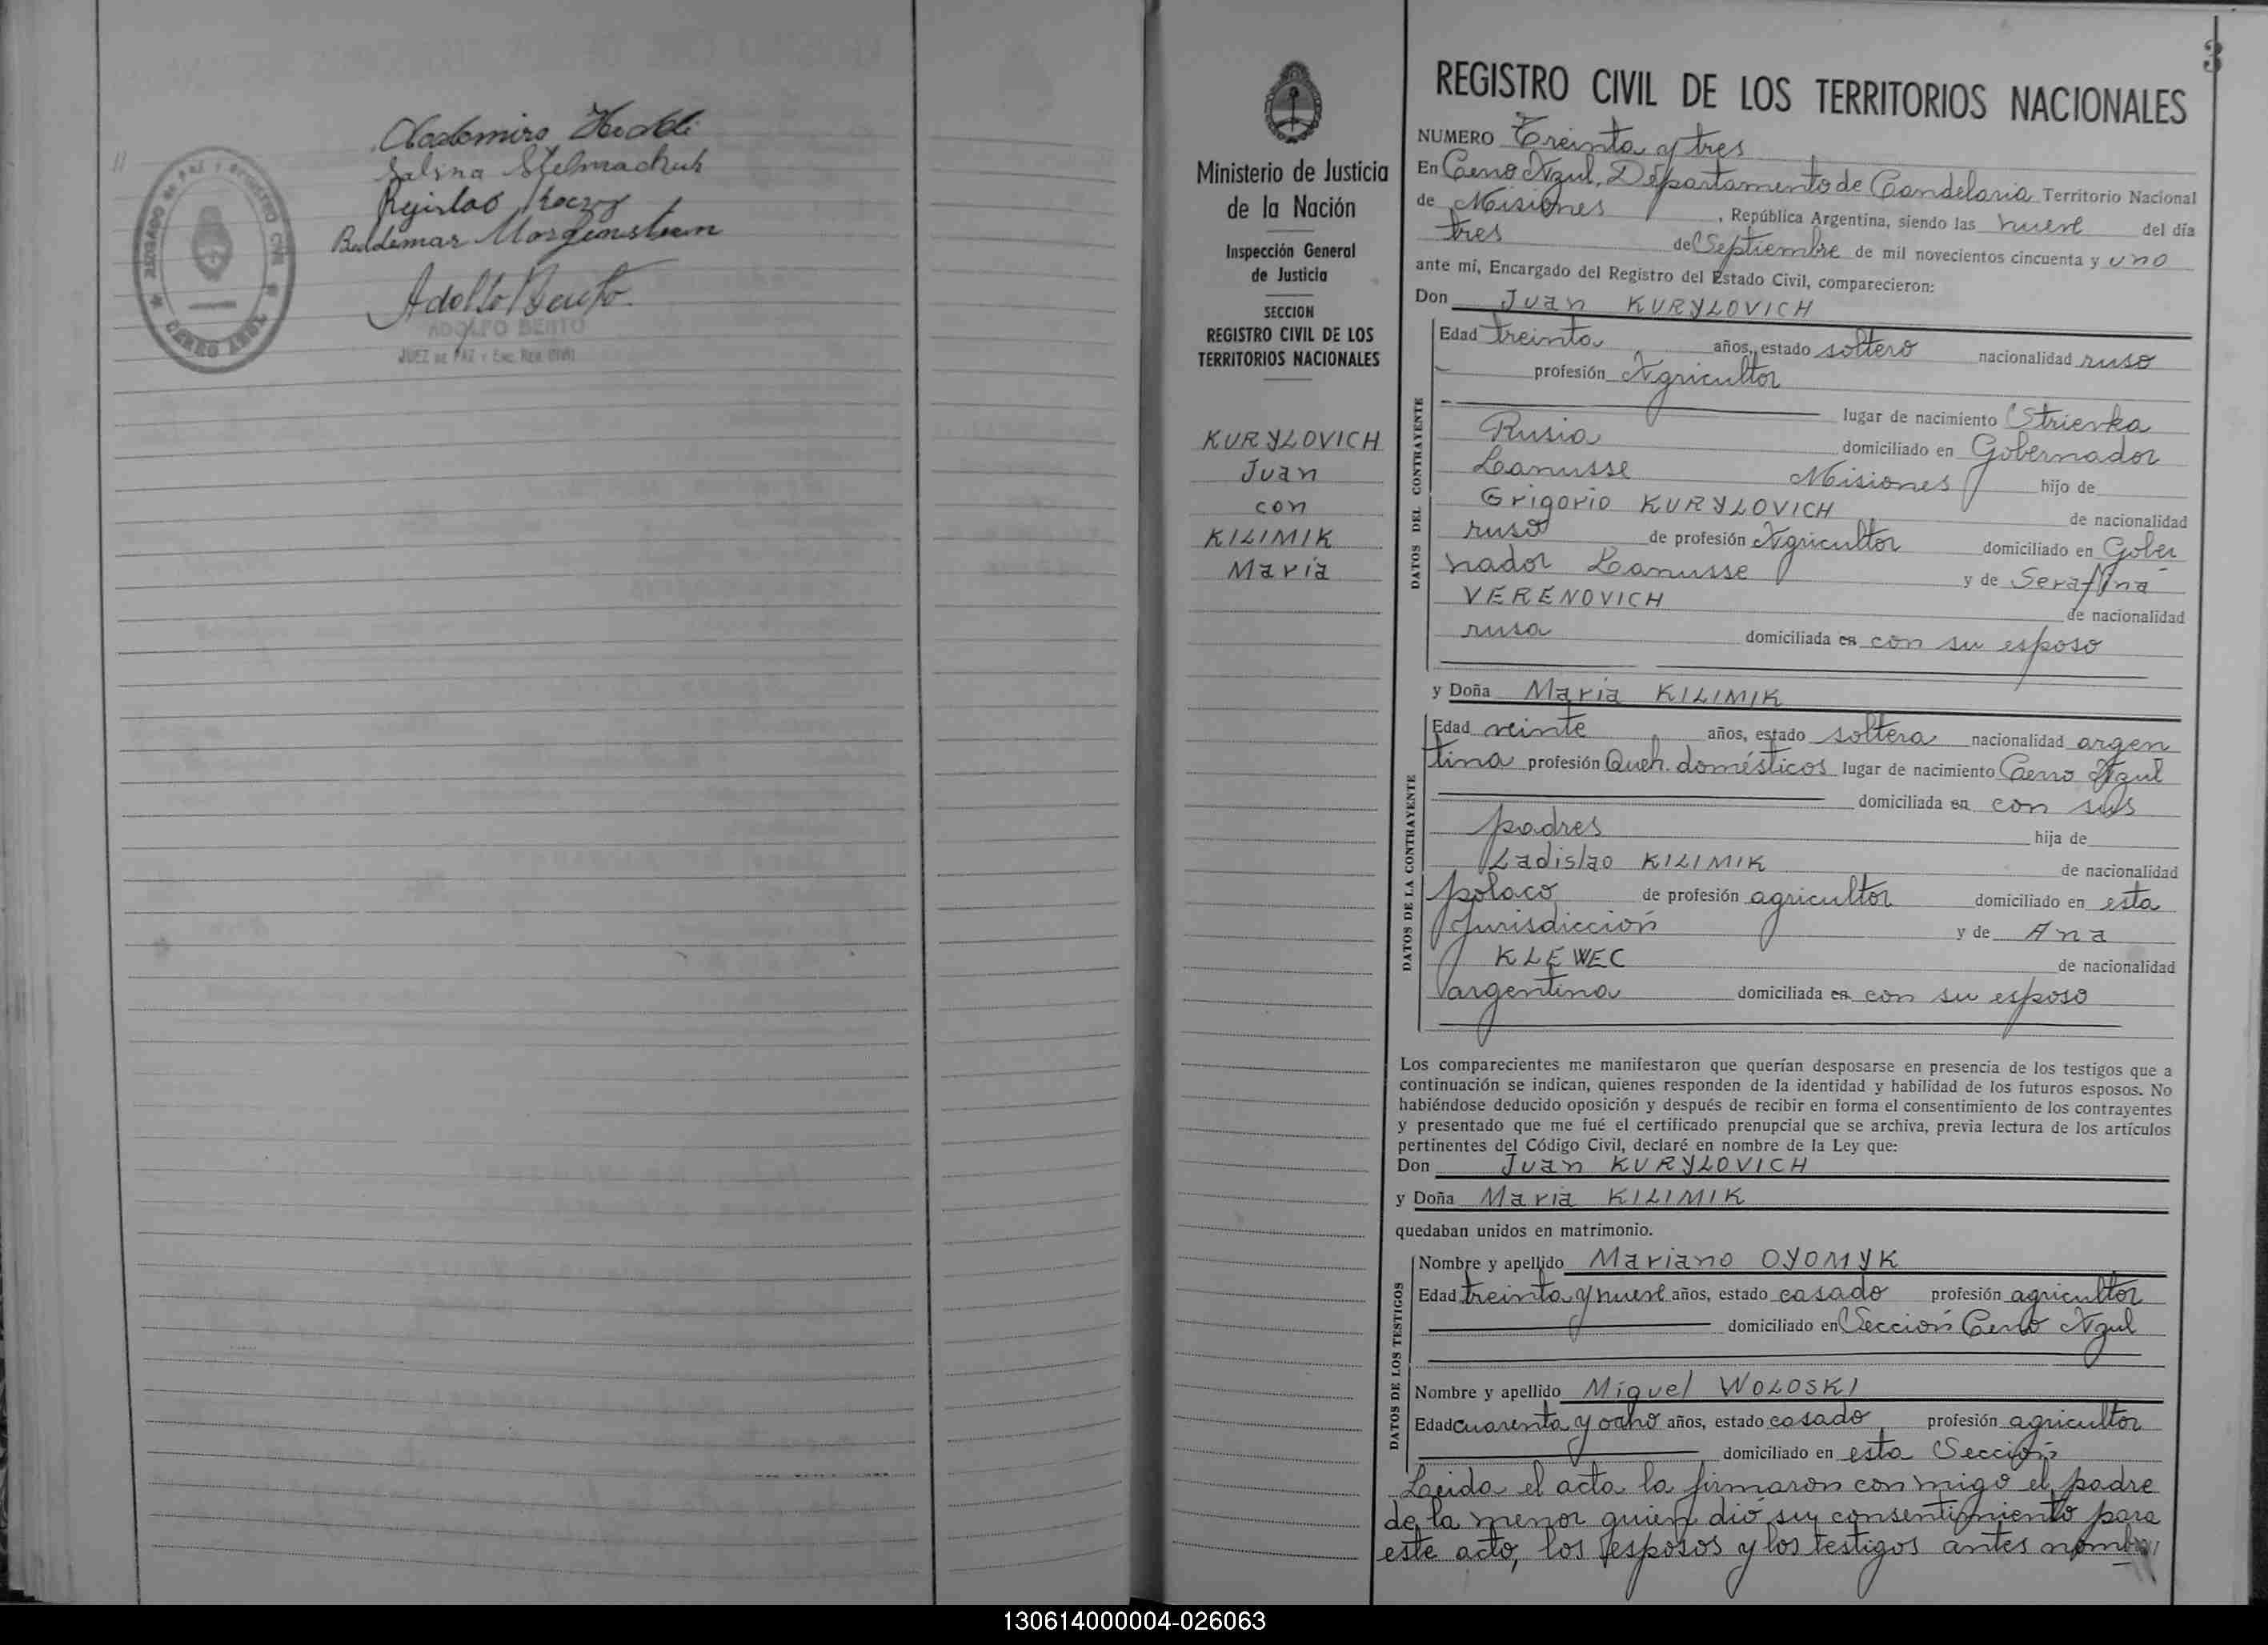 Salina Stelmachuk
Baldemar Morgenstern
Adolfo Bento
ADOLFO BENTO
JUEZ DE PAZ Y ENC. REG. CIVIL
JUZGADO DE PAZ Y REGISTRO CIVIL
CERRO AZUL
3
Ministerio de Justicia
de la Nación
Inspección General
de Justicia
SECCION
REGISTRO CIVIL DE LOS
TERRITORIOS NACIONALES
KURYLOVICH
Juan
con
KILIMIK
Maria
REGISTRO CIVIL DE LOS TERRITORIOS NACIONALES
NUMERO Treinta y tres
En Cerro Azul, Departamento de Candelaria Territorio Nacional
de Misiones, República Argentina, siendo las nueve del día
tres de Septiembre de mil novecientos cincuenta y uno
ante mí, Encargado del Registro del Estado Civil, comparecieron:
Don Juan KURYLOVICH
DATOS DEL CONTRAYENTE
Edad treinta años, estado soltero nacionalidad ruso
profesión Agricultor
lugar de nacimiento Strievka
Rusia domiciliado en Gobernador
Lanusse Misiones hijo de
Grigorio KURYLOVICH de nacionalidad
ruso de profesión Agricultor domiciliado en Gober
nador Lanusse y de Serafina
VERENOVICH de nacionalidad
rusa domiciliada en con su esposo
y Doña Maria KILIMIK
DATOS DE LA CONTRAYENTE
Edad veinte años, estado soltera nacionalidad argen
tina profesión Queh. domésticos lugar de nacimiento Cerro Azul
domiciliada en con sus
padres hija de
Ladislao KILIMIK de nacionalidad
polaco de profesión agricultor domiciliado en esta
Jurisdicción y de Ana
KLEWEC de nacionalidad
argentina domiciliada en con su esposo
Los comparecientes me manifestaron que querían desposarse en presencia de los testigos que a
continuación se indican, quienes responden de la identidad y habilidad de los futuros esposos. No
habiéndose deducido oposición y después de recibir en forma el consentimiento de los contrayentes
y presentado que me fué el certificado prenupcial que se archiva, previa lectura de los artículos
pertinentes del Código Civil, declaré en nombre de la Ley que:
Don Juan KURYLOVICH
y Doña Maria KILIMIK
quedaban unidos en matrimonio.
DATOS DE LOS TESTIGOS
Nombre y apellido Mariano OYOMYK
Edad treinta y nueve años, estado casado profesión agricultor
domiciliado en Sección Cerro Azul
Nombre y apellido Miguel WOLOSKI
Edad cuarenta y ocho años, estado casado profesión agricultor
domiciliado en esta Sección
Leida el acta la firmaron conmigo el padre
de la menor quien dió su consentimiento para
este acto, los esposos y los testigos antes nombra
130614000004-026063